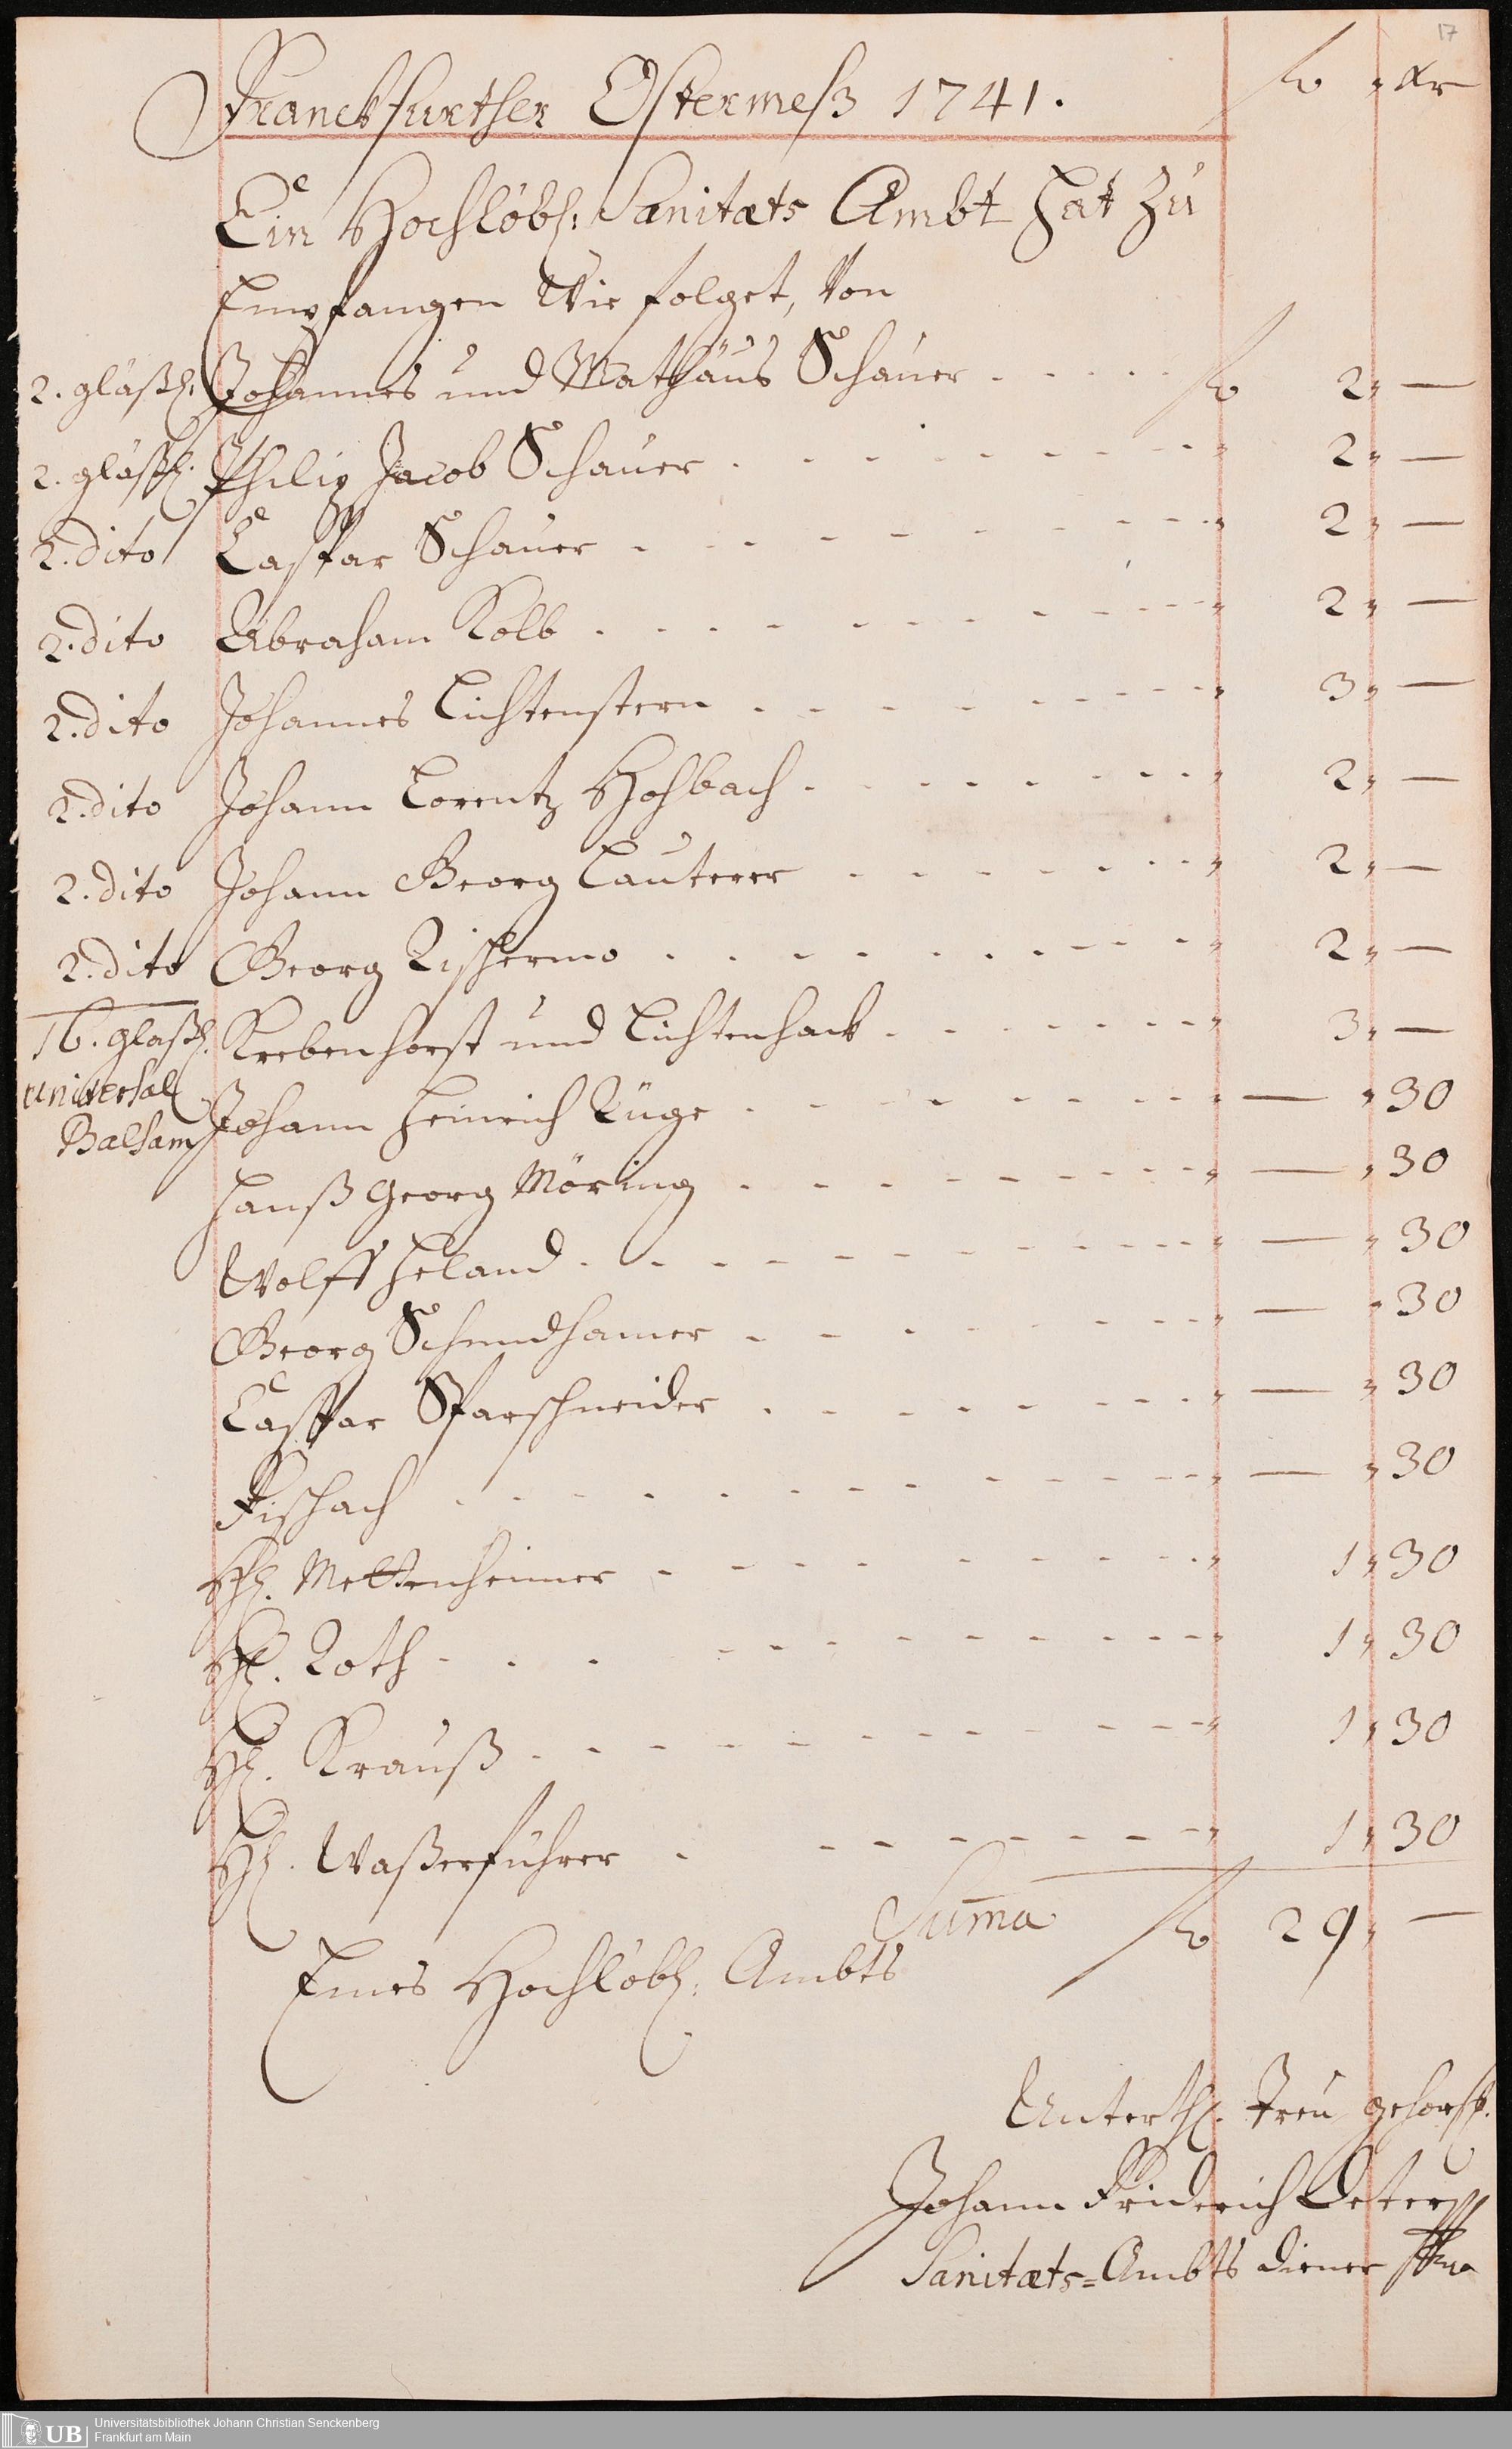 17
Franckfurther Ostermeß 1741. fl Xr
Ein Hochlöbl: Sanitæts Ambt hat zu
Empfangen Wie folget, Von
2. gläßl: Johannes und Mathäus Schauer . . . . . fl 2, —
2. gläßl. Philip Jacob Schauer . . . . . . . . . 2, —
2. dito Caspar Schauer . . . . . . . . . 2, —
2. dito Abraham Kolb . . . . . . . . . 2, —
2. dito Johannes Lichtenstern . . . . . . . . . 3, —
2. dito Johann Lorentz Hohbach . . . . . . . . 2, —
2. dito Johann Georg Lauterer . . . . . . . . 2, —
2. dito Georg Rischermo . . . . . . . . . 2, —
16. glaßl. Krebenhorst und Lichtenhack . . . . . . . 3, —
universal
Johann Heinrich Rüge . . . . . . . . . — , 30
Balsam
Hanß Georg Möring . . . . . . . . . — , 30
Wolff Heland . . . . . . . . . — , 30
Georg Schmidhamer . . . . . . . . — , 30
Caspar Sparschneider . . . . . . . . — , 30
Fischach . . . . . . . . . . — , 30
Hl. Mettenheimer . . . . . . . . . 1, 30
Hl. Roth . . . . . . . . . . 1, 30
Hl. Krauß . . . . . . . . . . 1, 30
Hl. Waßerführer . . . . . . . . 1, 30
Suma fl 29, —
Eines Hochlöbl: Ambts
Unterthl. treu gehorsst.
Johann Friderich Deter
Sanitæts=Ambts diener
UB Universitätsbibliothek Johann Christian Senckenberg
Frankfurt am Main